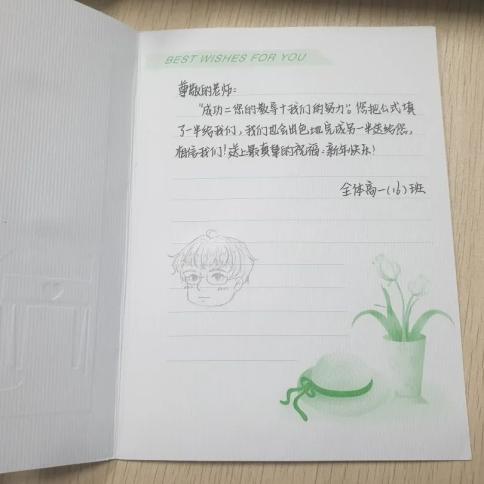 BEST WISHES FOR YOU
尊敬的老师:
“成功=您的教导+我们的努力”。您把公式填
了一半给我们,我们也会出色地完成另一半送给您,
相信我们!送上最真挚的祝福:新年快乐!
全体高一(16)班